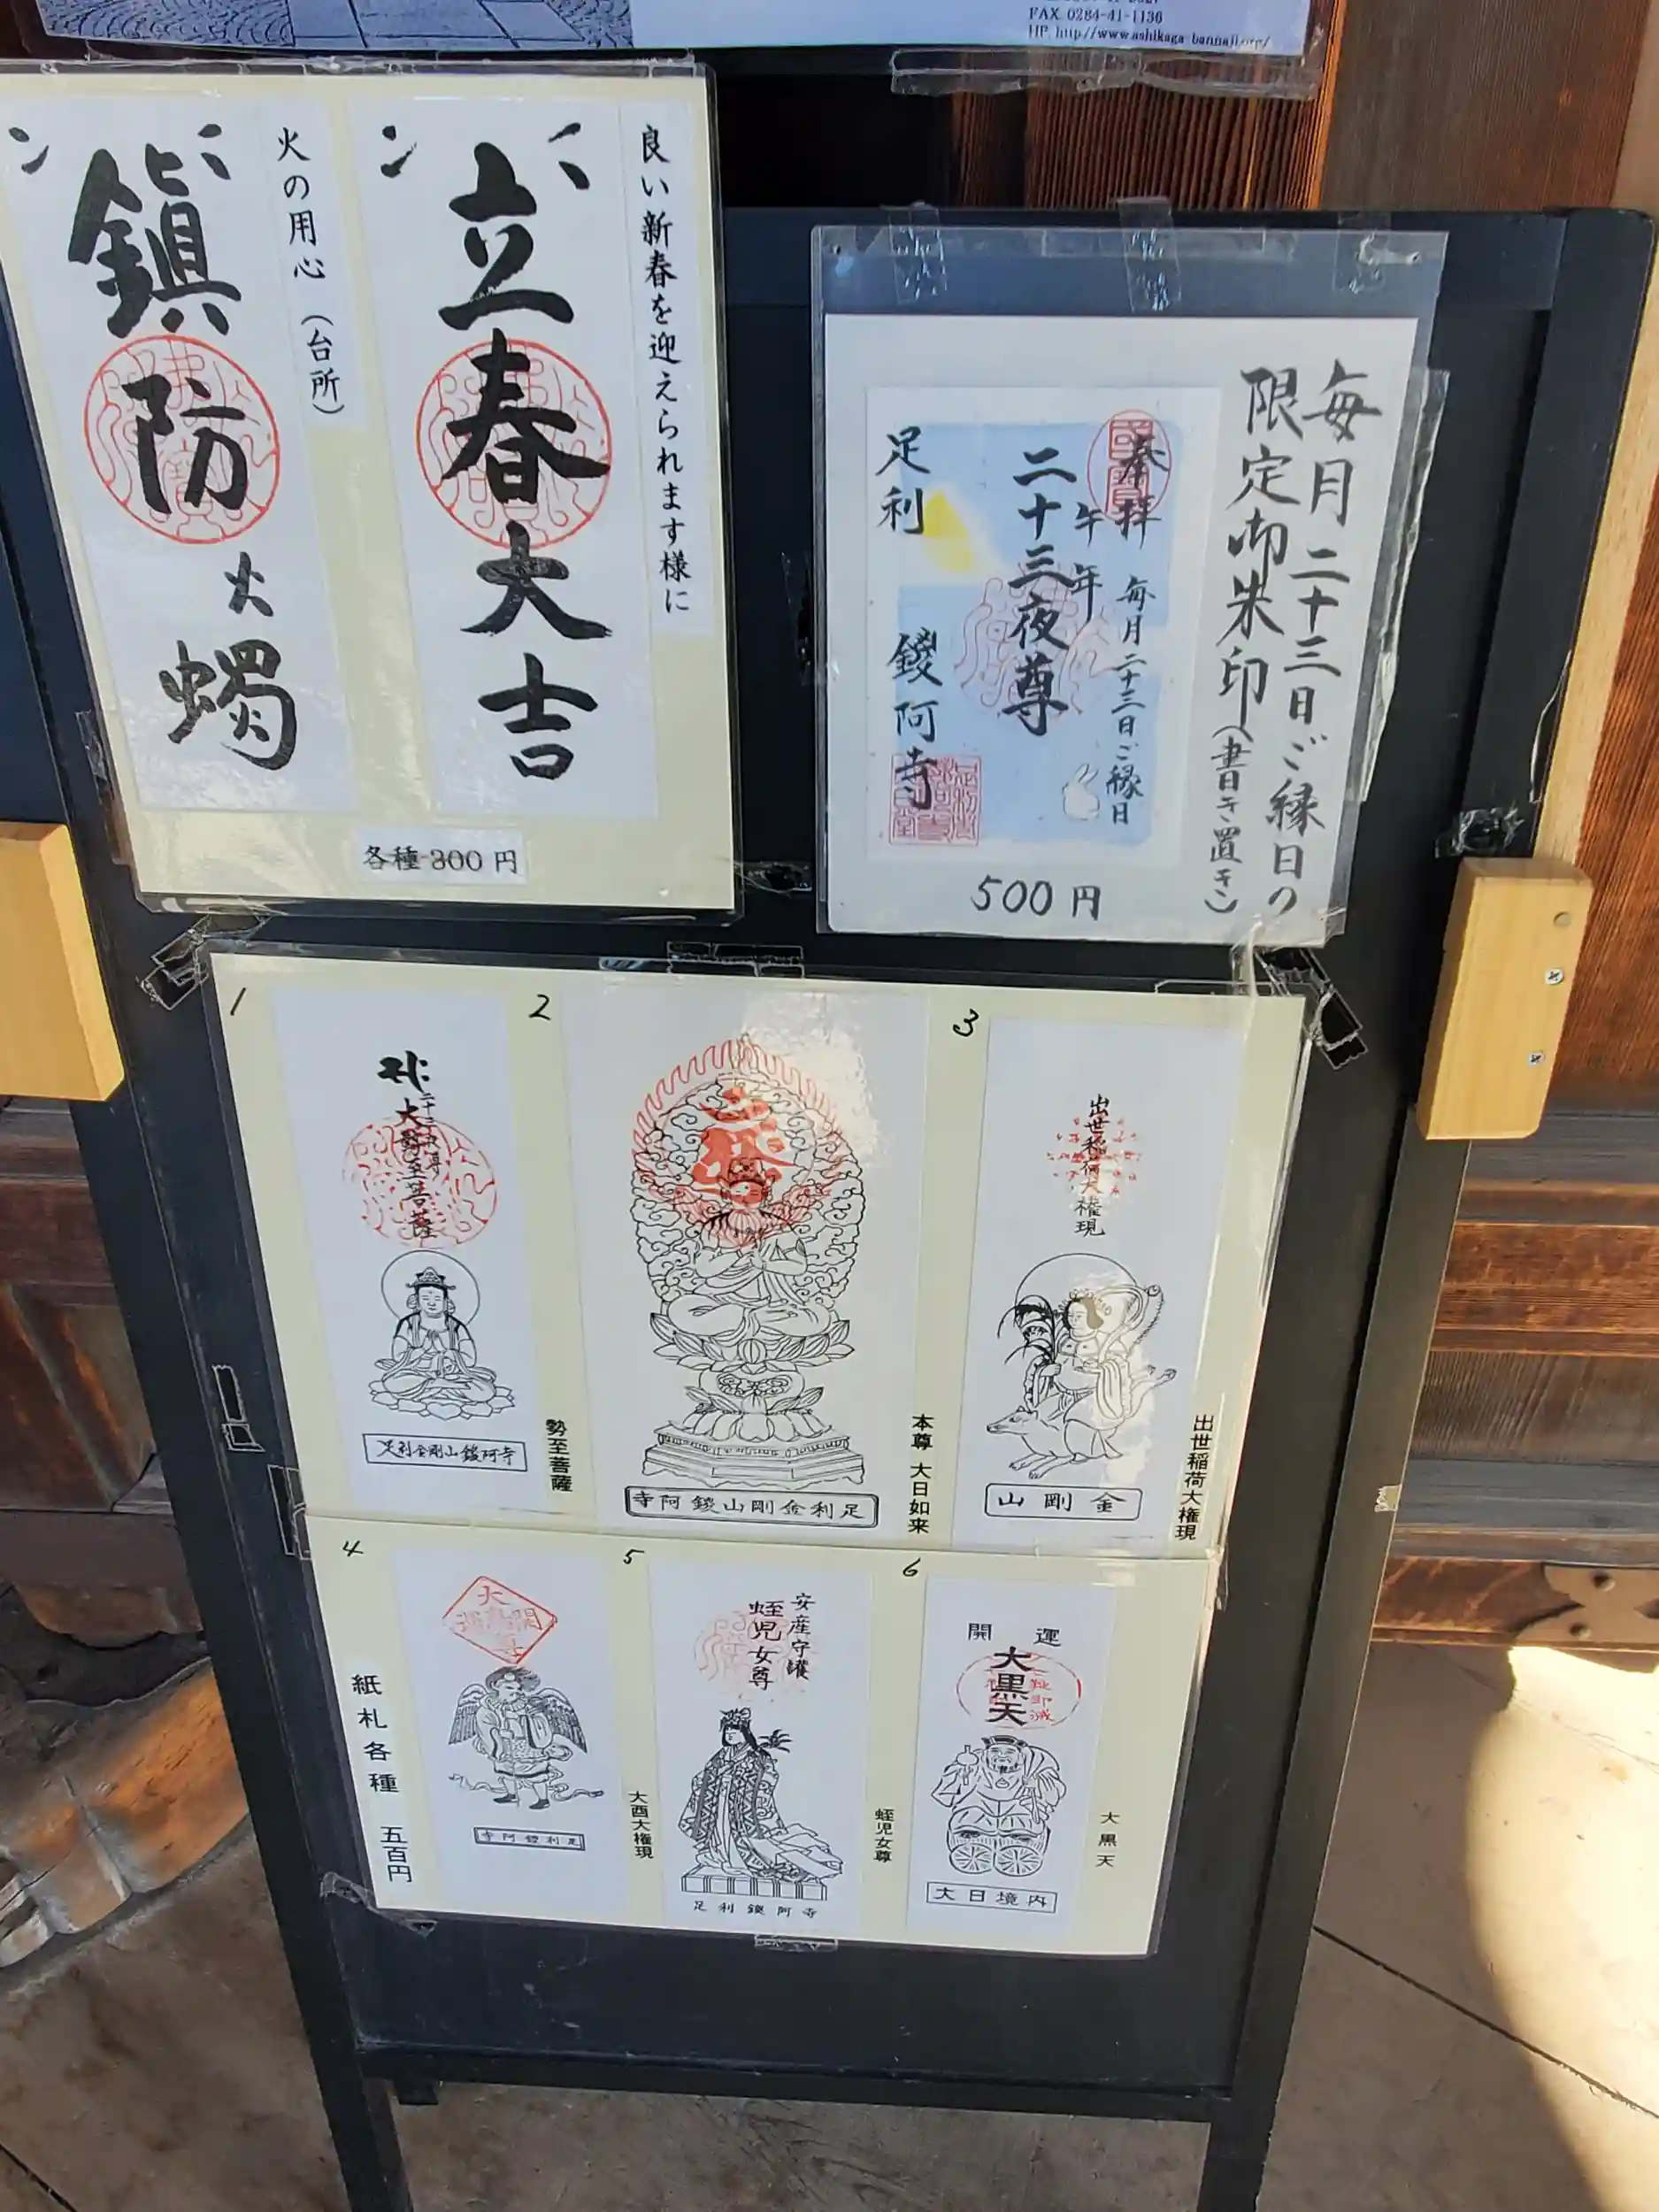 FAX 0284-41-1136
HP http://www.ashikaga-bannaji.org/
良い新春を迎えられます様に
立春大吉
火の用心（台所）
鎮防火蠋
各種 300 円
毎月二十三日ご縁日の
限定御朱印（書き置き）
奉拝
毎月二十三日ご縁日
午年
二十三夜尊
足利 鑁阿寺
500円
1
大勢至菩薩
足利金剛山鑁阿寺
勢至菩薩
2
寺阿鑁山剛金利足
本尊 大日如来
3
出世稲荷大権現
山剛金
出世稲荷大権現
4
寺阿鑁利足
大酉大権現
5
安産守護
蛭児女尊
足利鑁阿寺
蛭児女尊
6
開運
大黒天
大日境内
大黒天
紙札各種 五百円